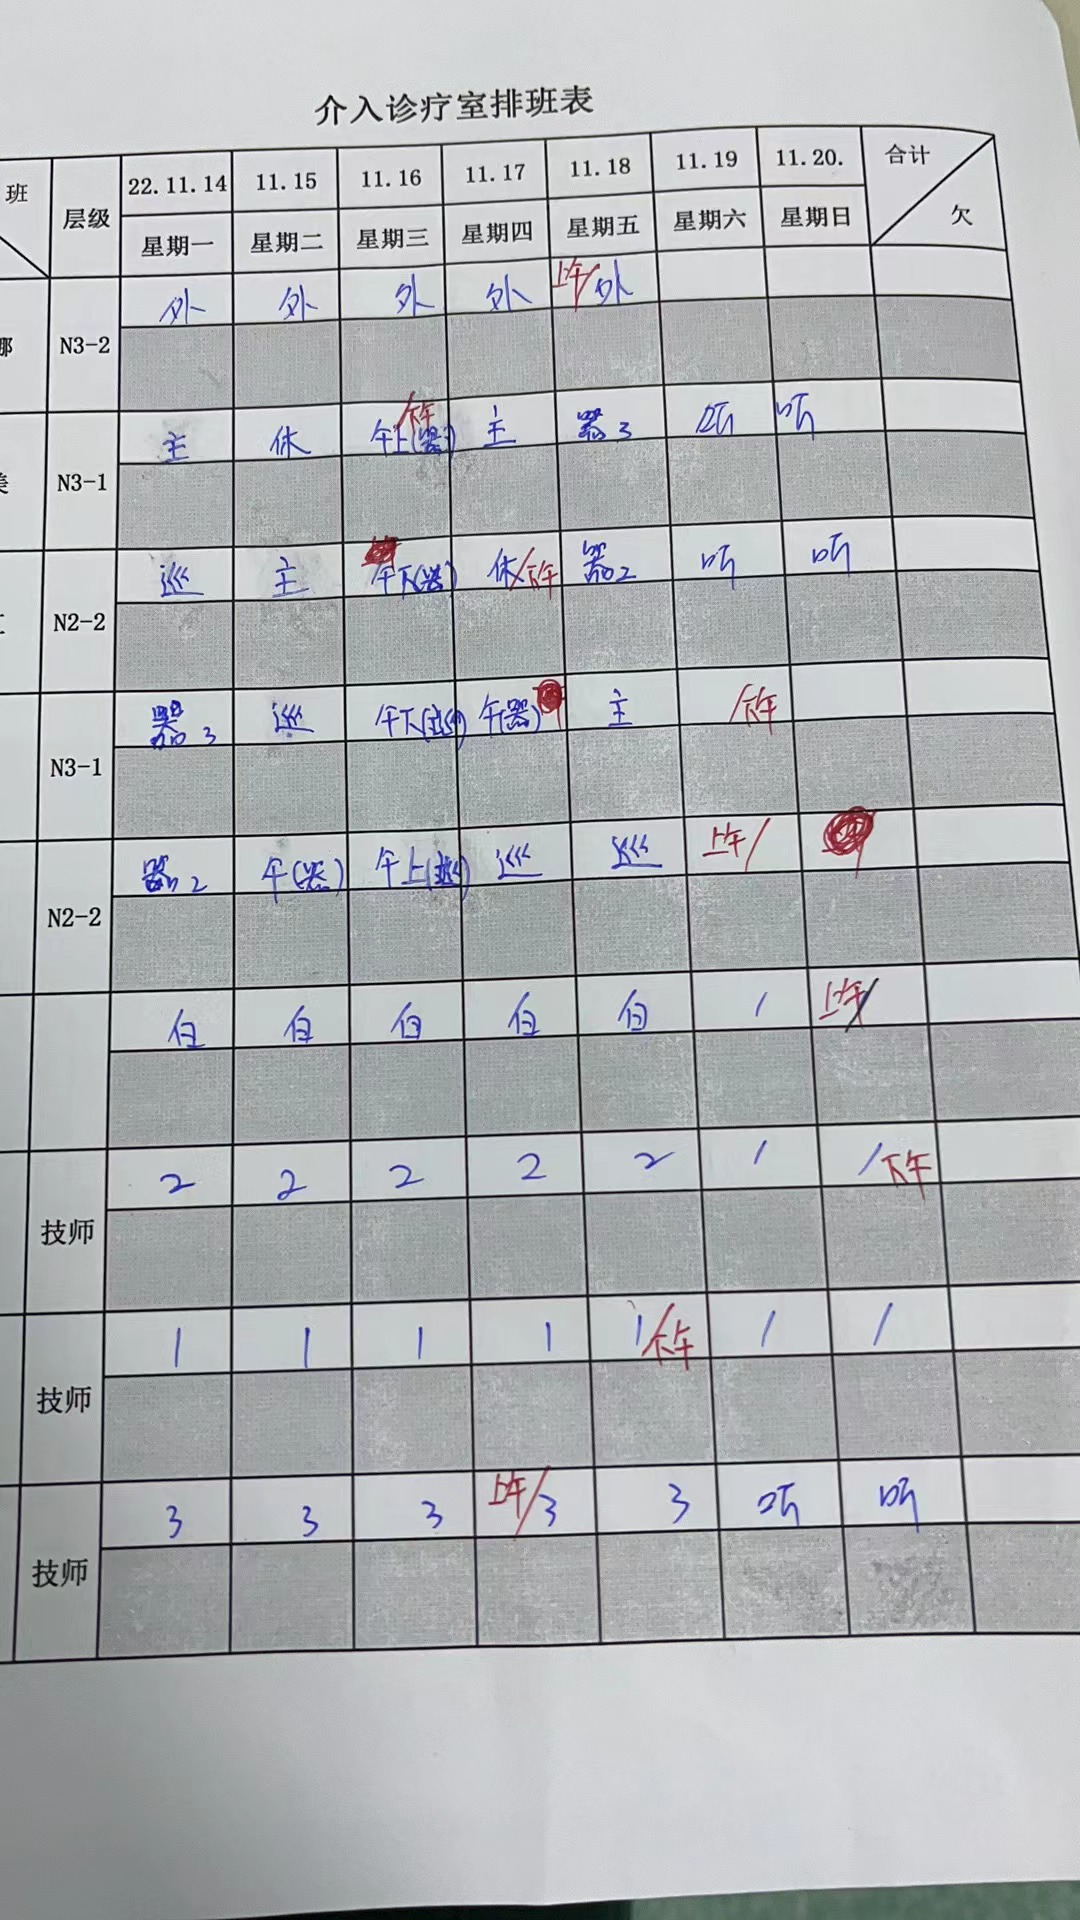 介入诊疗室排班表
班 层级 22.11.14 11.15 11.16 11.17 11.18 11.19 11.20. 合计
星期一 星期二 星期三 星期四 星期五 星期六 星期日 欠
外 外 外 外 上午/外
娜 N3-2
主 休 午上(器) /下午 主 器3 听 听
美 N3-1
巡 主 午下(器) 休/下午 器2 听 听
N2-2
器3 巡 午下(巡) 午(器) 主 /下午
N3-1
器2 午(器) 午上(巡) 巡 巡 上午/
N2-2
白 白 白 白 白 / 上午/
2 2 2 2 2 / /下午
技师
1 1 1 1 1/下午 / /
技师
3 3 3 上午/3 3 听 听
技师